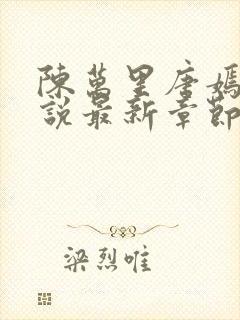 陳萬里唐嫣
說最新章節
梁烈唯